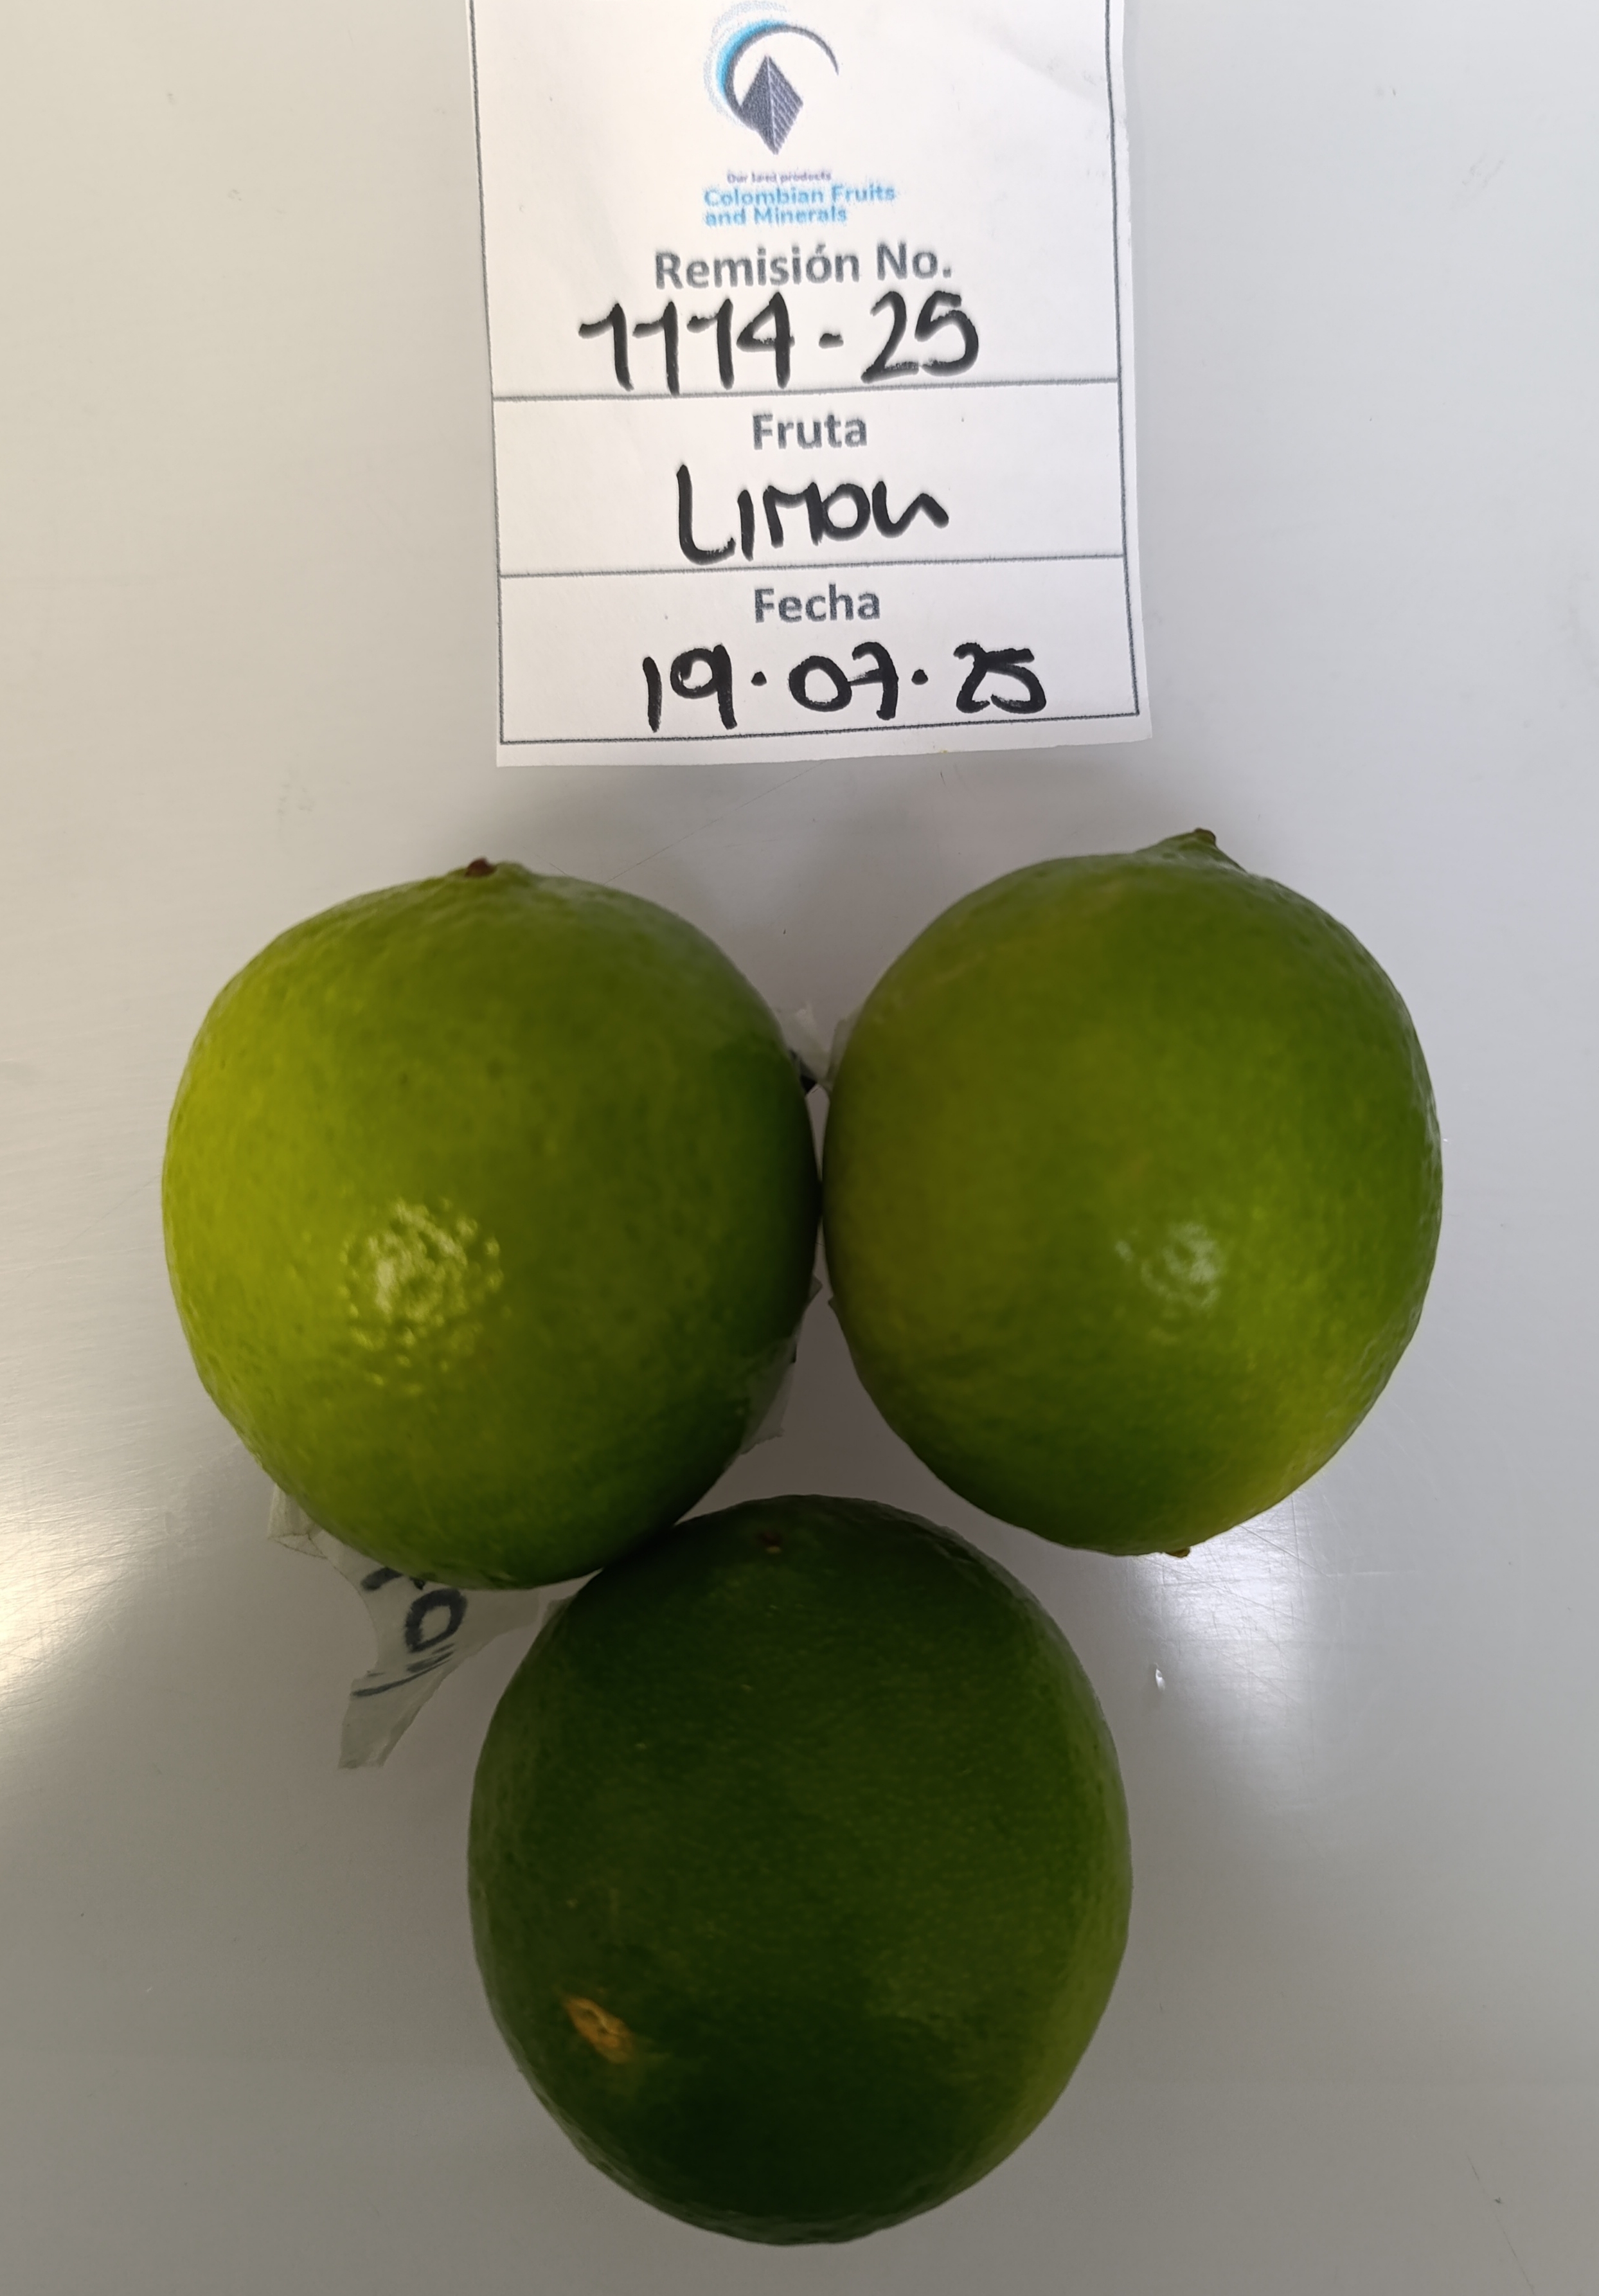 Our land products
Colombian Fruits
and Minerals
Remisión No.
1114-25
Fruta
LIMON
Fecha
19.07.25